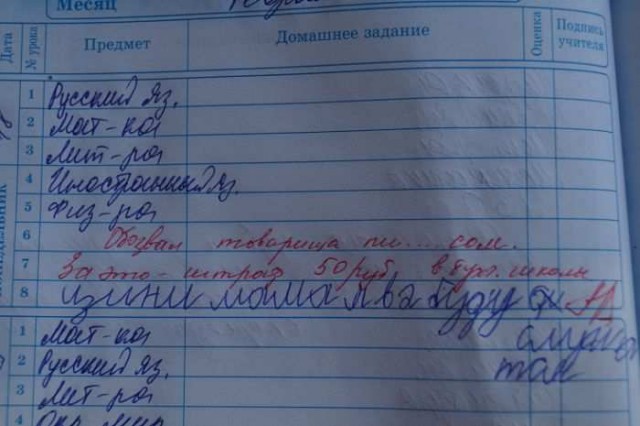 Месяц
Дата
№ урока
Предмет
Домашнее задание
Оценка
Подпись учителя
1 Русский яз.
2 Мат-ка
3 Лит-ра
4 Иностранный яз.
5 Физ-ра
6 Обозвал товарища пи....сом.
7 За это - штраф 50 руб. в
8 мама я буду
1 Мат-ка
2 Русский яз.
3 Лит-ра
4 Окр. мир